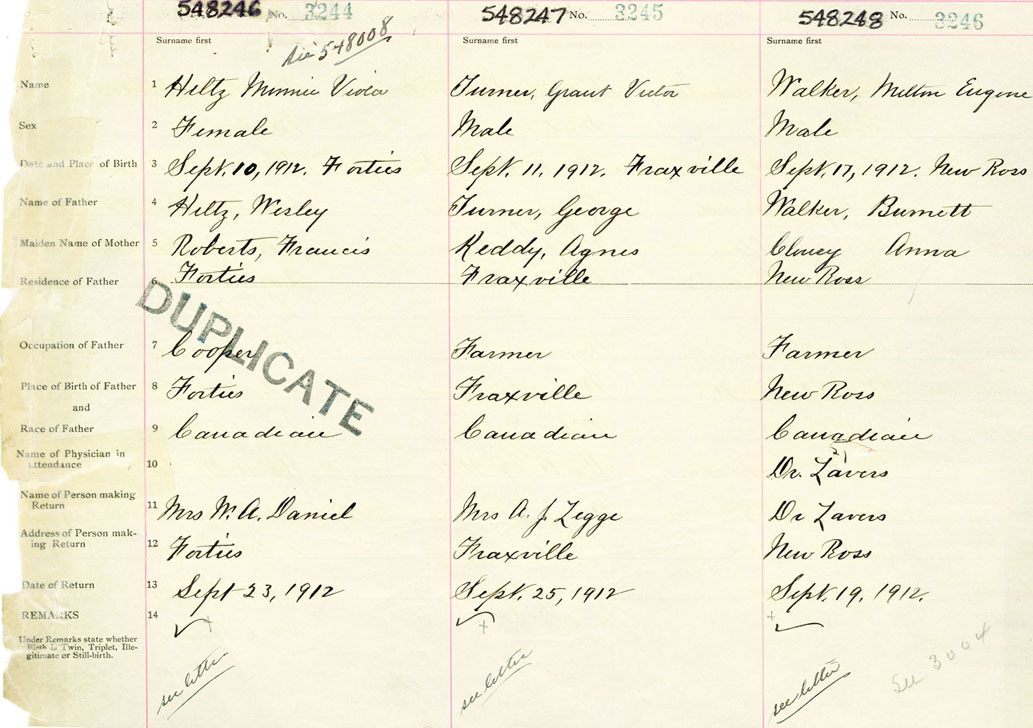 548246 No. 3244 548247 No. 3245 548248 No. 3246
Surname first Surname first Surname first
see 548008
Name 1 Hiltz Minnie Viola Turner, Grant Victor Walker, Milton Eugene
Sex 2 Female Male Male
Date and Place of Birth 3 Sept. 10, 1912. Forties Sept. 11, 1912. Fraxville Sept. 17, 1912. New Ross
Name of Father 4 Hiltz, Wesley Turner, George Walker, Burnett
Maiden Name of Mother 5 Roberts, Francis Keddy, Agnes Anna
Residence of Father 6 Forties Fraxville New Ross
DUPLICATE
Occupation of Father 7 Cooper Farmer Farmer
Place of Birth of Father 8 Forties Fraxville New Ross
and
Race of Father 9 Canadian Canadian Canadian
Name of Physician in
attendance 10 Dr. Lavers
Name of Person making
Return 11 Mrs W. A. Daniel Mrs A. J. Legge Dr Lavers
Address of Person mak-
ing Return 12 Forties Fraxville New Ross
Date of Return 13 Sept 23, 1912 Sept. 25, 1912 Sept. 19, 1912.
REMARKS 14
Under Remarks state whether
Birth is Twin, Triplet, Ille-
gitimate or Still-birth.
see letter see letter see letter See 3004